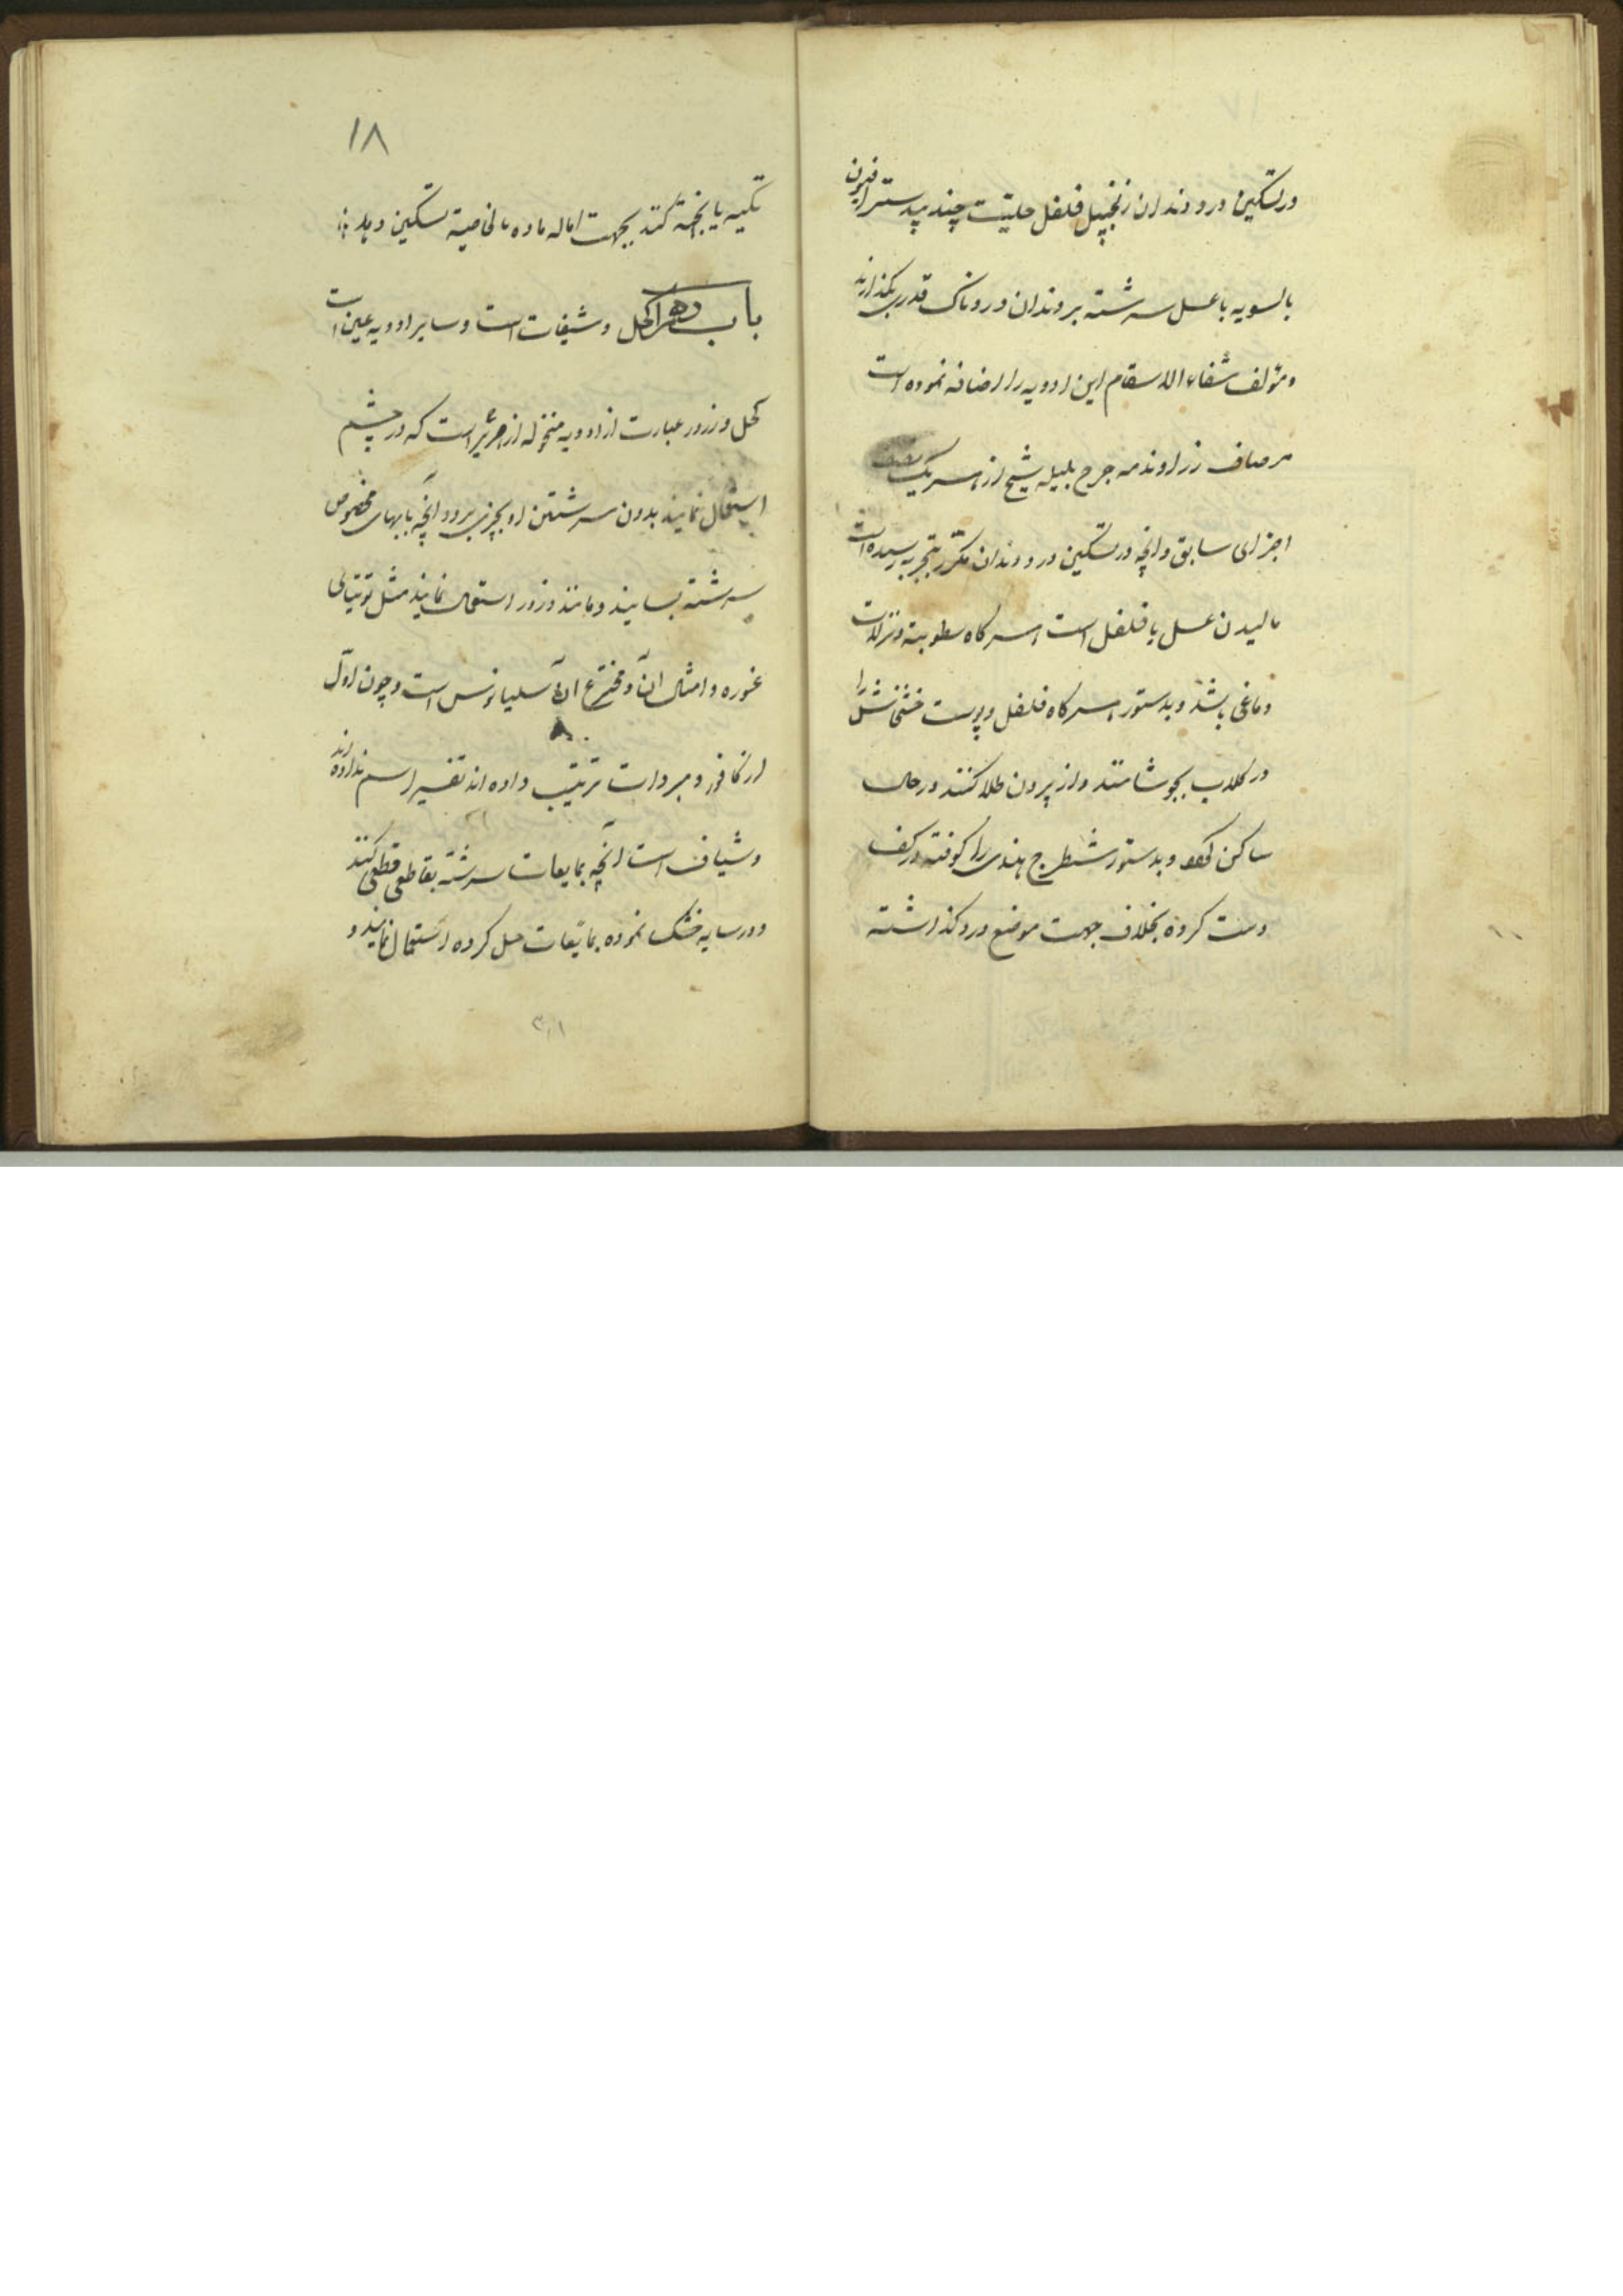 در تسکین درد دندان زنجبیل فلفل حلتیت جند بیدستر افیون
بالسویه با عسل سرشته بر دندان دردناک قدری بگذارند
و مؤلف شفاء الاسقام این ادویه را اضافه نموده است
مر صاف زراوند مدحرج بلیله شیح از هر یک
اجزای سابق و انچه در تسکین درد دندان مکرر بتجربه رسیده است
مالیدن عسل با فلفل است هر کاه رطوبت و نزلات
دماغی باشد و بدستور هر کاه فلفل و پوست خشخاش را
در کلاب بجوشانند و از بیرون طلا کنند در حال
ساکن کند و بدستور شیطرج هندی را کوفته در کف
دست کرده بخلاف جهت موضع درد کذاشته
۱۸
تکیه با نجه کنند بجهت اماله ماده بالخاصیة تسکین دهد
باب دهم اکحل و شیفات است و سایر ادویه عین است
کحل و زرور عبارت از ادویه منخوله از حریر است که در چشم
استعمال نمایند بدون سرشتن او بچیزی برود آنچه بابهای مخصوص
سرشته بسایند و مانند زرور استعمال نمایند مثل توتیای
غوره و امثال آن و مخترع آن آسلیانوس است و چون اول
از کافور و مبردات ترتیب داده اند تغییر اسم نداده اند
و شیاف است آنچه بمایعات سرشته بقاطعی قطع کنند
و در سایه خشک نموده بمایعات حل کرده استعمال نمایند و